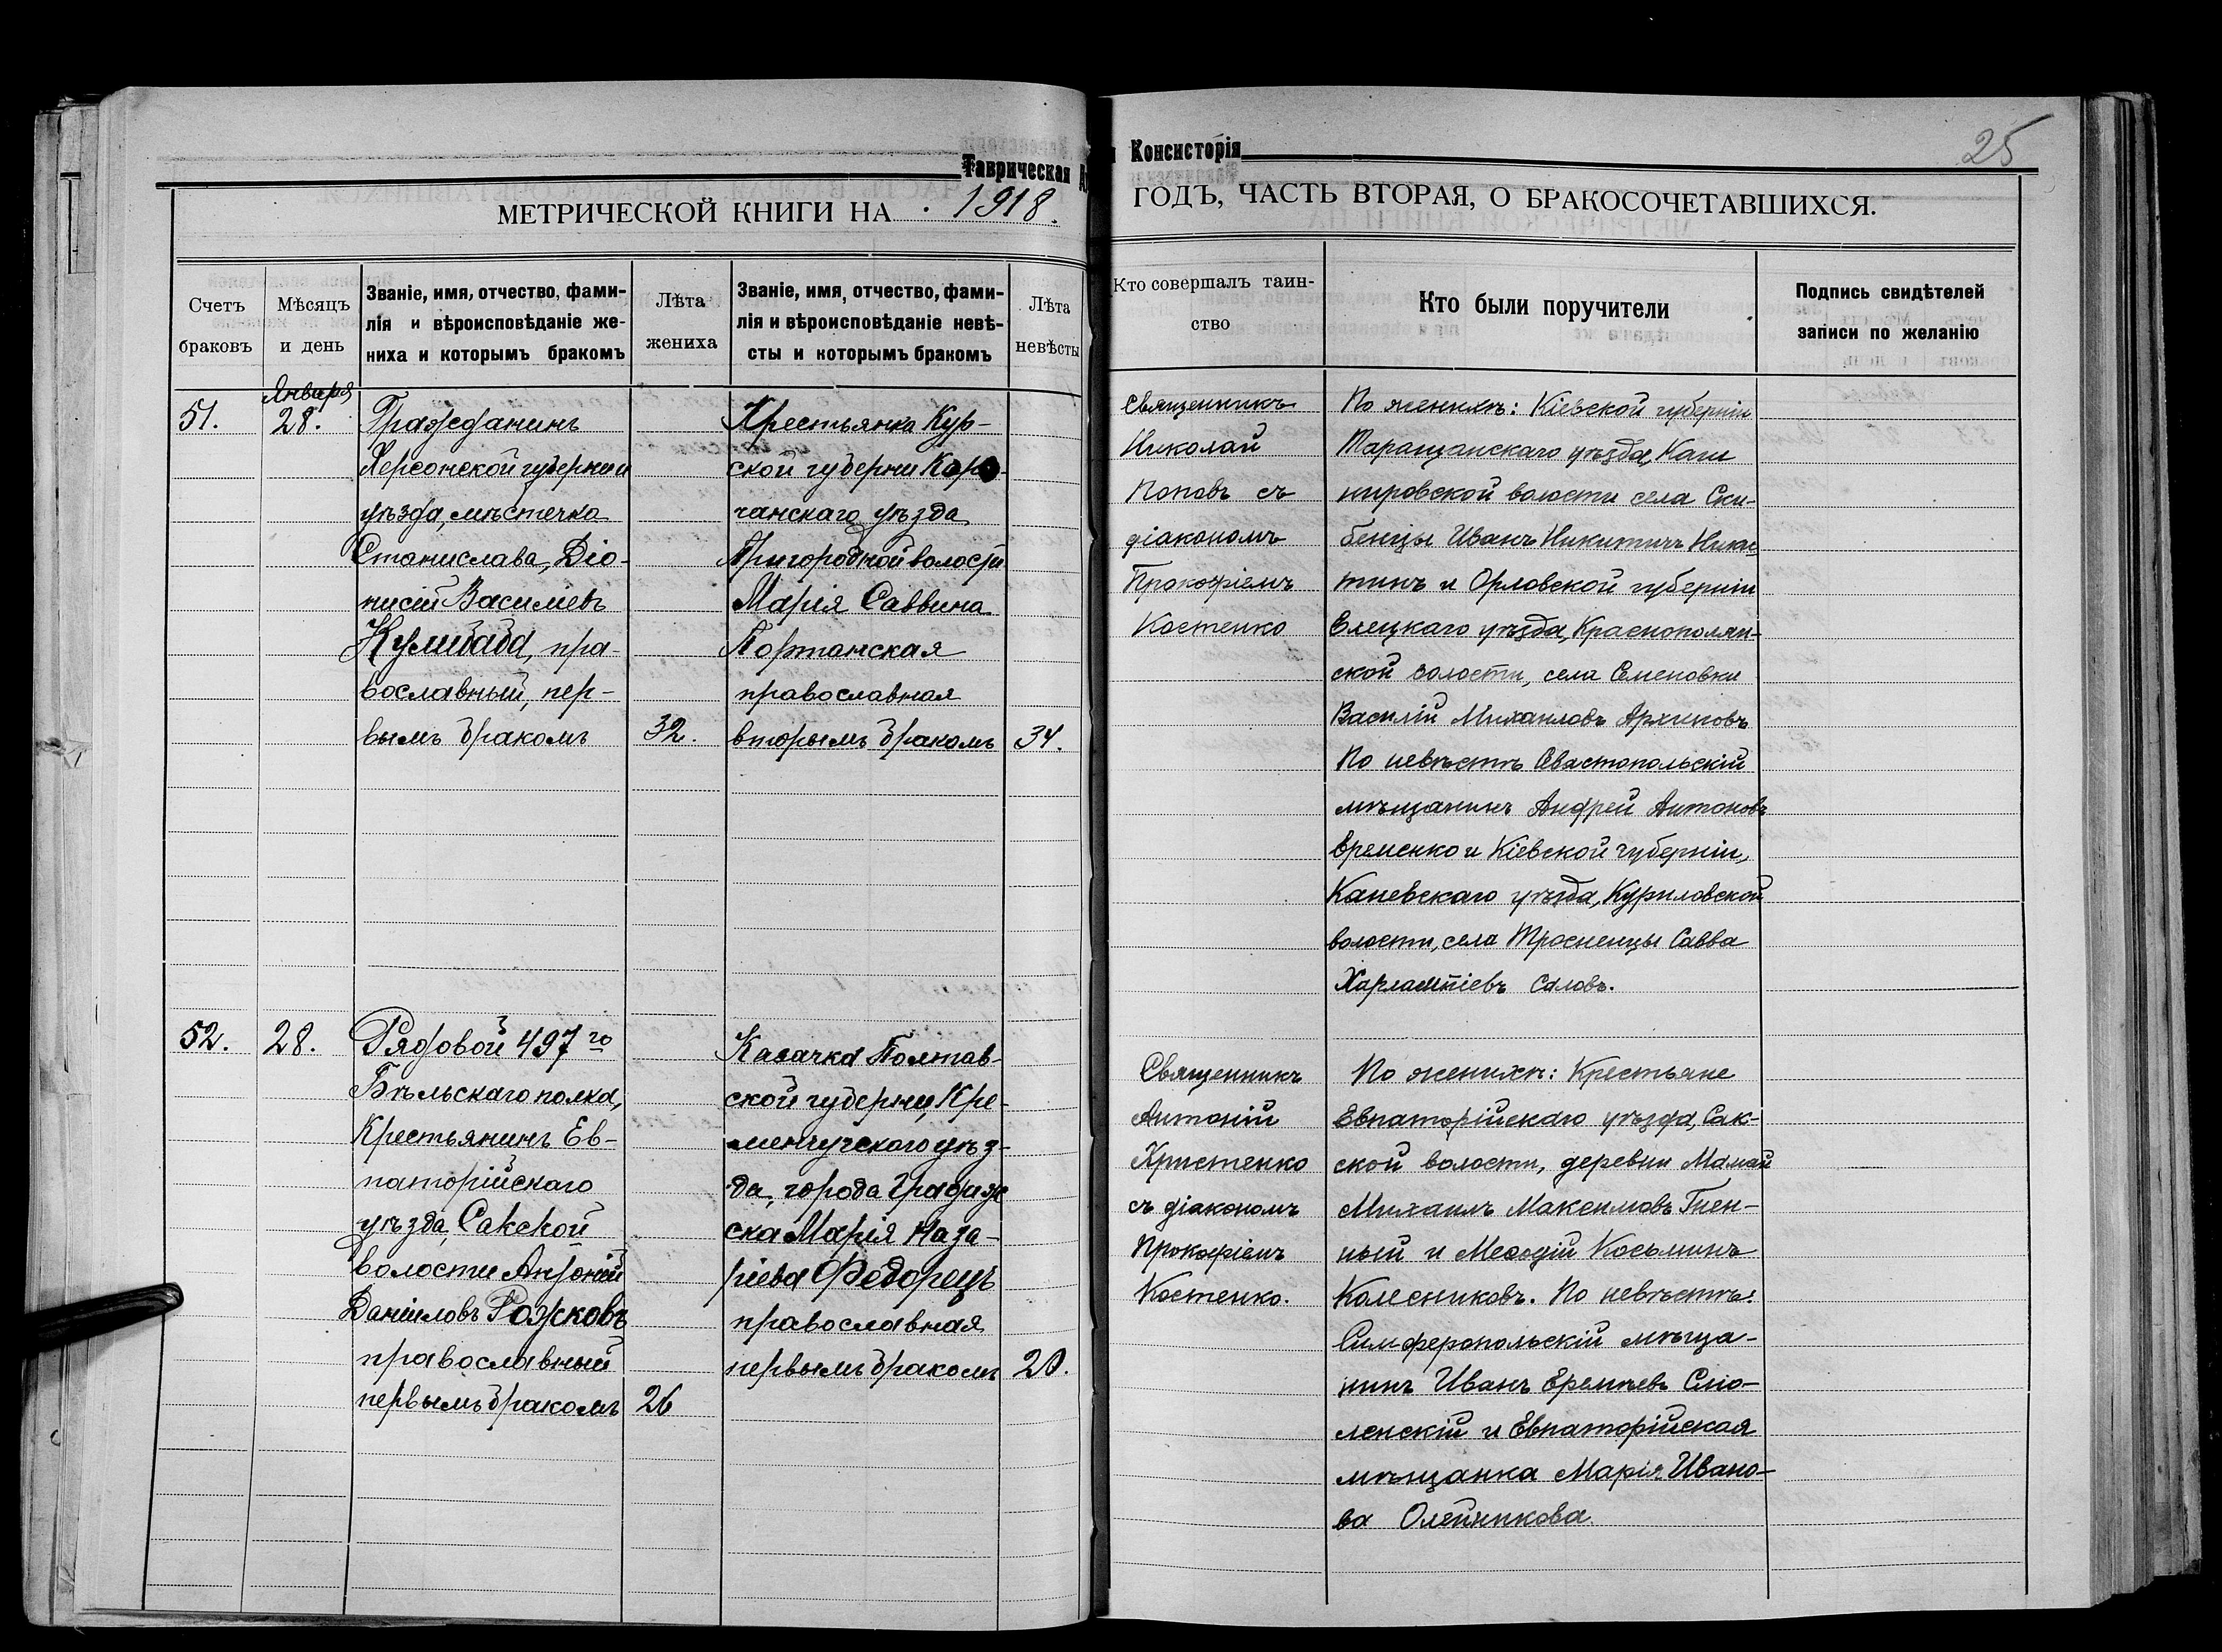 Таврическая
Консисторія
25
МЕТРИЧЕСКОЙ КНИГИ НА 1918.
ГОДЪ, ЧАСТЬ ВТОРАЯ, О БРАКОСОЧЕТАВШИХСЯ.
Счетъ
браковъ
Мѣсяцъ
и день
Званіе, имя, отчество, фами-
лія и вѣроисповѣданіе же-
ниха и которымъ бракомъ
Лѣта
жениха
Званіе, имя, отчество, фами-
лія и вѣроисповѣданіе невѣ-
сты и которымъ бракомъ
Лѣта
невѣсты
Кто совершалъ таин-
ство
Кто были поручители
Подпись свидѣтелей
записи по желанію
51.
Января
28.
Гражданинъ
Херсонской губернии
уѣзда, мѣстечка
Станислава, Діо-
нисій Василіевъ
Кулибаба, пра-
вославный, пер-
вымъ бракомъ
32.
Крестьянка Кур-
ской губерни Коро-
чанскаго уѣзда
Пригородной волости
Марія Саввина
Портанская
православная
вторымъ бракомъ
34.
Священникъ
Николай
Поповъ съ
діакономъ
Прокофіемъ
Костенко
По женихѣ: Кіевской губерніи
Таращанскаго уѣзда, Каши
нировской волости села Ски-
бенцы Иванъ Никитинъ Ники-
тинъ и Орловской губерніи
Елецкаго уѣзда, Краснополян-
ской волости, села Семеновки
Василій Михаиловъ Архиповъ
По невѣстѣ Севастопольскій
мѣщанинъ Андрей Антоновъ
Временко и Кіевской губерніи,
Каневскаго уѣзда, Куриловской
волости, села Тросненцы Савва
Харлампіевъ Саловъ.
52.
28.
Рядовой 497го
Бѣльскаго полка,
Крестьянинъ Ев-
паторійскаго
уѣзда, Сакской
волости Антоній
Даніиловъ Рожковъ
православный
первымъ бракомъ
26
Казачка Полтав-
ской губерни, Кре-
менчугскаго уѣз-
да, города Градиж
ска Марія Наза-
ріева Федорецъ
православная
первымъ бракомъ
20.
Священникъ
Антоній
Христенко
съ діакономъ
Прокофіемъ
Костенко.
По женихѣ: Крестьяне
Евпаторійскаго уѣзда, Сак-
ской волости, деревни Мамай
Михаилъ Максимовъ Гнен-
ный и Меѳодій Косьминъ
Колесниковъ. По невѣстѣ:
Симферопольскій мѣща-
нинъ Иванъ Еремѣевъ Смо-
ленскій и Евпаторійская
мѣщанка Марія Ивано-
ва Олейникова.